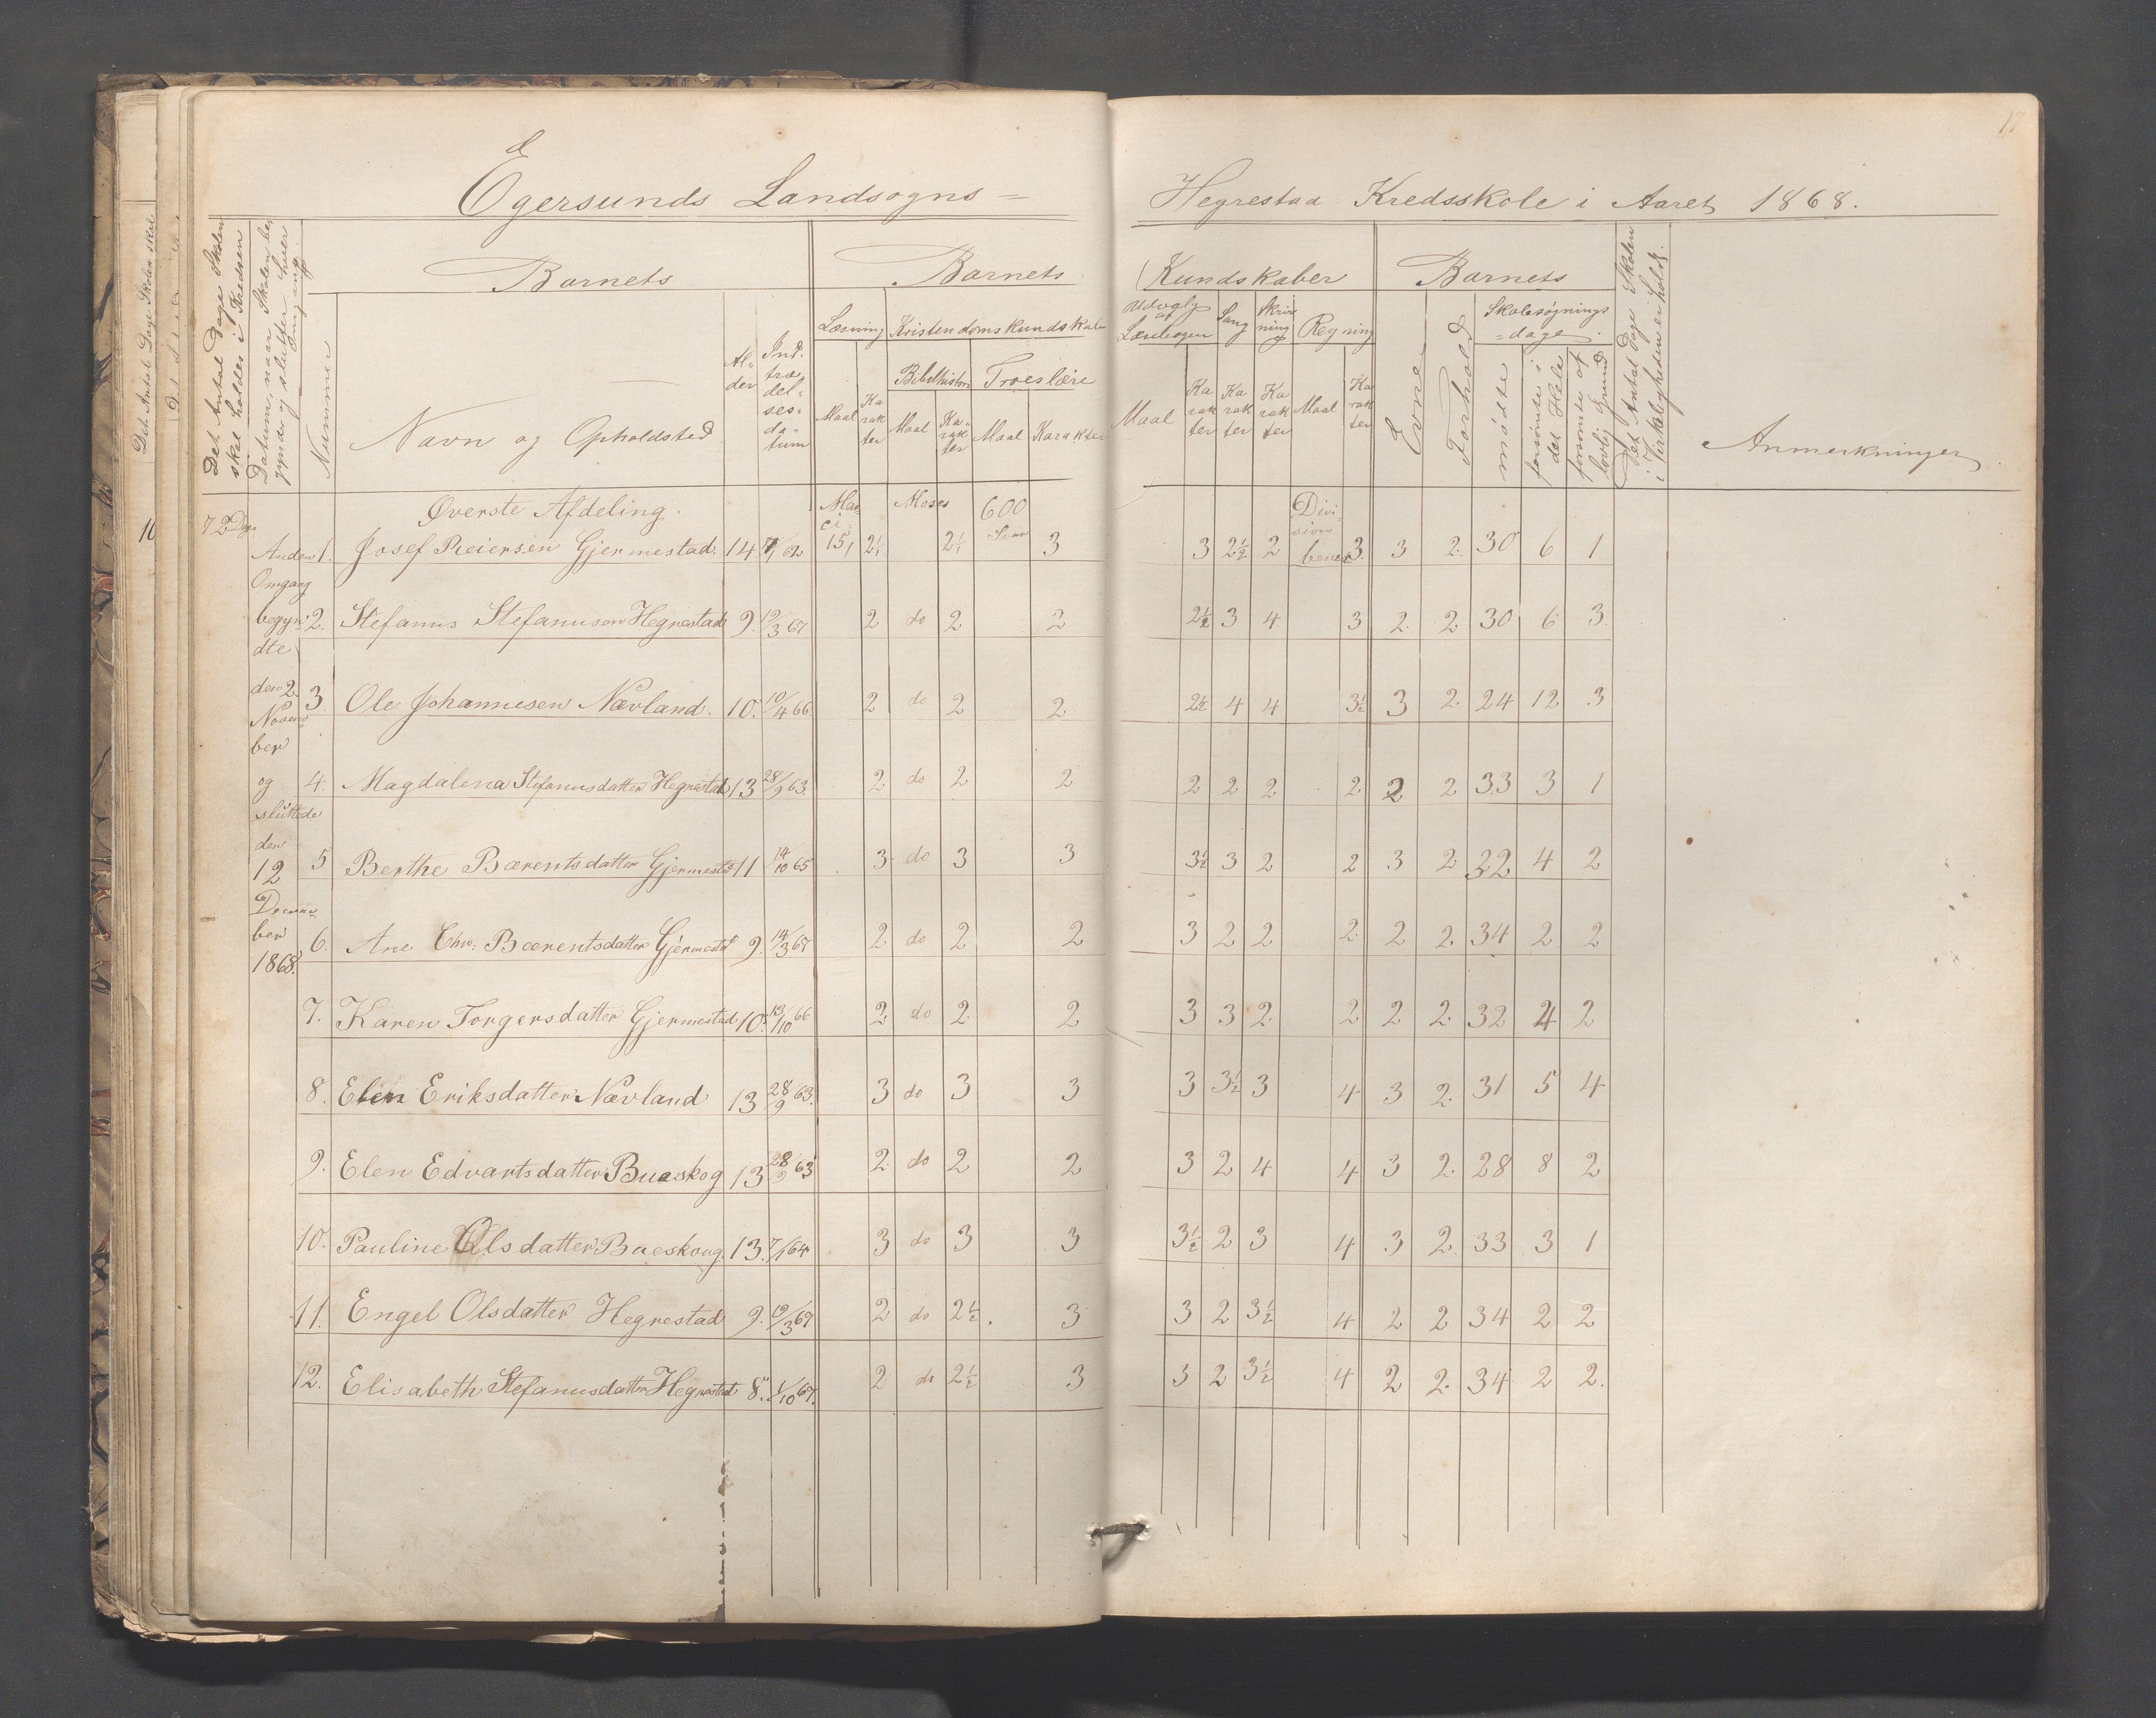 Egersunds Landsogns =
Hegrestad Kredsskole i Aaret 1868.
17
Det Antal Dage Skolen skal holdes i Kredsen
Datum, naar Skolen begynder og slutter hver Omgang.
Nummer
Barnets
Navn og Opholdsted
Al-
der
Ind-
træ-
del-
ses-
da-
tum
Barnets
Kundskaber
Læsning
Kristendomskundskab
Bibelhistorie
Troeslære
Maal
Ka
rak
ter
Maal
Ka-
rak
ter
Maal
Karakter
Udvalg
af
Læsebogen
Sang
Skriv
ning
Regning
Maal
Ka
rak
ter
Ka
rak
ter
Ka
rak
ter
Maal
Ka
rak
ter
Barnets
Evne
Forhold
Skolesøgnings
=dage
mødte
forsømte i det Hele
forsømte af lovlig Grund
Det Antal Dage Skolen i Virkeligheden er holdt.
Anmerkninger
72 Dage
Anden
Omgang
begyn-
dte
den 2.
Novem-
ber
og
sluttede
den
12
Decem-
ber
1868.
Øverste Afdeling.
1. Josef Reiersen Gjermestad. 14 7/1 62 15, 2½ Moses 2½ 600 3 3 2½ 2 Divi-
sion
benevnt 3. 3 2. 30 6 1
2. Stefanus Stefanusen Hegrestad 9. 12/3 67 2 do 2 2 2½ 3 4 3 2 2 30 6 3
3. Ole Johannesen Nævland. 10. 10/4 66 2 do 2 2 2½ 4 4 3½ 3 2 24 12 3
4. Magdalena Stefanusdatter Hegrestad 13 28/9 63. 2 do 2 2 2 2 2 2 2 2 33 3 1
5 Berthe Bærentsdatter Gjermestad 11 14/10 65 3 do 3 3 3½ 3 2 2 3 2 32 4 2
6. Ane Chr: Bærentsdatter Gjermestad 9. 14/3 67 2 do 2 2 3 2 2 2 2 2 34 2 2
7. Karen Torgersdatter Gjermestad 10. 13/10 66 2 do 2 2 3 3 2 2 2 2 32 4 2
8. Elen Eriksdatter Nævland 13 28/9 63. 3 do 3 3 3 3½ 3 4 3 2. 31 5 4
9. Elen Edvartsdatter Bueskog 13 28/9 63 2 do 2 2 3 2 4 4 3 2. 28 8 2
10. Pauline Olsdatter Bueskoug. 13. 7/1 64 3 do 3 3 3½ 2 3 4 3 2. 33 3 1
11. Engel Olsdatter Hegrestad 9. 12/3 67 2 do 2½ 3 3 2 3½ 4 2 2 34 2 2
12. Elisabeth Stefanusdatter Hegrestad 8. 1/10 67. 2 do 2½ 3 3 2 3½ 4 2 2. 34 2 2.